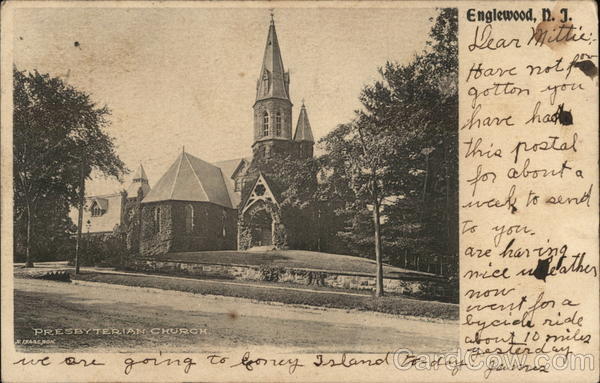 Englewood, N. J.
Dear Mittie:
Have not for
gotton you
have had
this postal
for about a
week to send
to you.
are having
nice weather
now
went for a
bycicle ride
about 10 miles
yesterday
PRESBYTERIAN CHURCH
ISAACSON
we are going to Coney Island today
CardCow.com